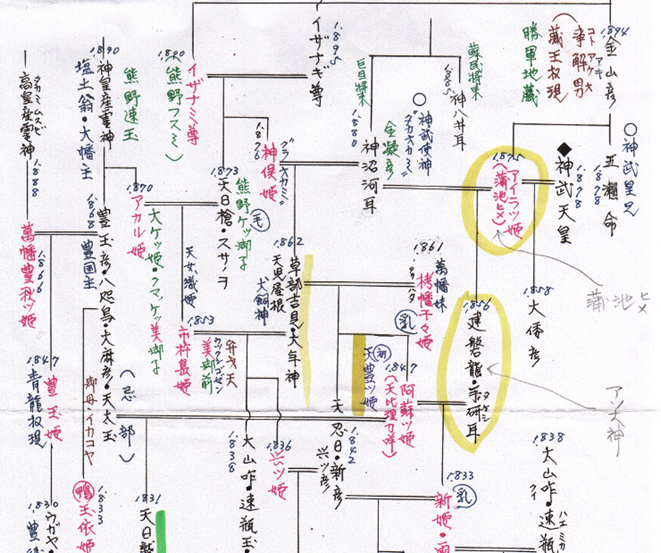 1894
金山彦
コトアケ
アキ
事解男
蔵王権現
勝軍地蔵
蘇民将来
1885
神八井耳
巨旦将来
1880
神沼河耳
金凝彦
神武侍神
イザナギ尊
1895
イザナミ尊
1890
大熊野フスミ
熊野速玉
1890
神皇産霊神
塩土翁・大幡主
タカミムスビ
高皇産霊神
1888
神武皇兄
五瀬命
1878
神武天皇
1878
アイラツ姫
(蒲池ヒメ)
蒲池ヒメ
1858
大保彦
1856
建磐龍・手研耳
タケシ
アソ大神
1876
神俣姫
1873
天日槍・スサノヲ
熊野ケッ御子
毛
1870
アカル姫
大ケッ姫・クマケッ美御子
天女織姫
1868
豊玉彦・八咫烏・大麻彦・天太玉
豊国主
(忌部)
1866
萬幡豊秋ツ姫
1862
草部吉見・大年神
天児屋根
犬飼神
1861
萬幡妹
タクハタ
栲幡千々姫
乳
1853
市杵島姫
美御前
弁才天
天豊ツ姫
初
1847
阿蘇ツ姫
(天比理乃咩)
1847
豊玉姫
青龍权現
御母・イカコヤ
1833
鴨
玉依姫
1830
ウガヤ・
豊
1831
天日鷲
1838
大山咋・速瓶玉
1836
興ツ姫
1842
天忍日・新彦
興ツ彦
1833
乳
新姫・雨
1838
大山咋・速瓶
ハエミカ